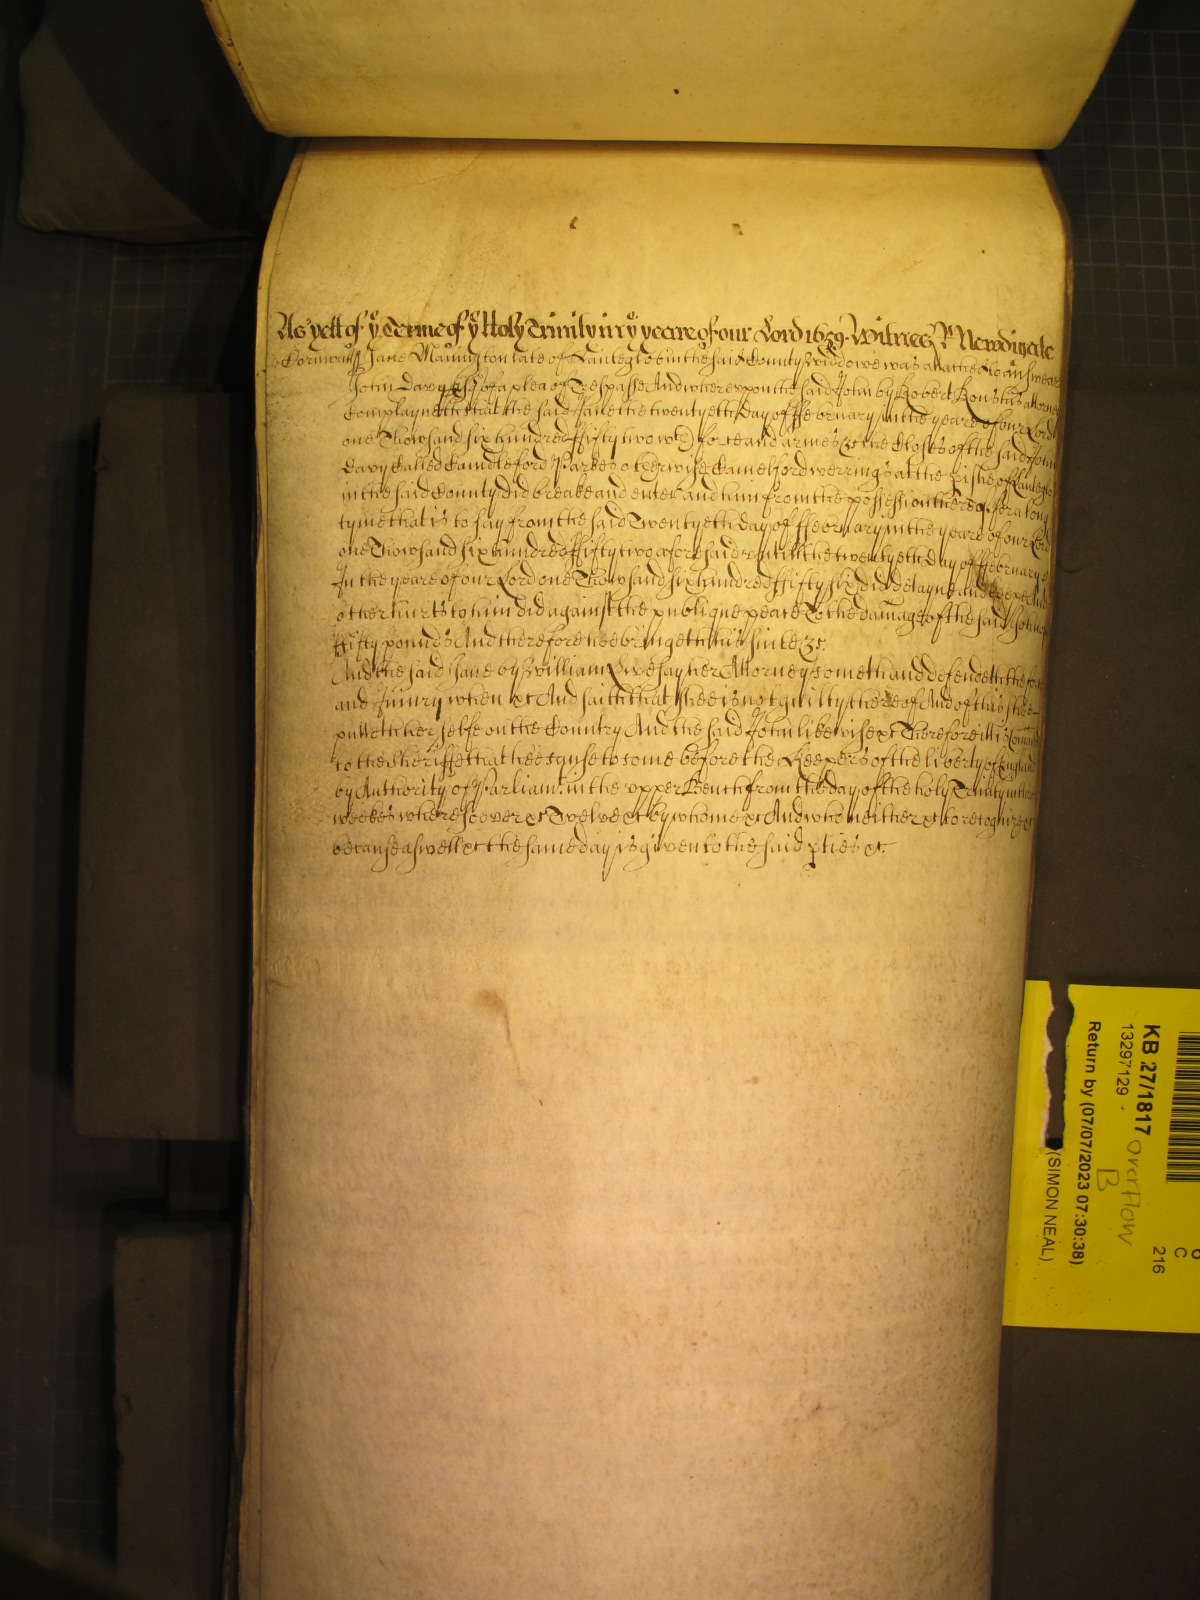 As yett of ye Terme of ye Holy Trinity in ye yeare of our Lord 1659. Witnes R Newdigate
Cornwall ss Jane Mannington late of Lanteglos in the said County widdowe was attatched to answeare
John Davy Esqr of a plea of Trespasse And whereuppon the said John by Robert his attorney
Complayneth that the said Jane the twentyeth day of ffebruary in the yeare of our Lord
one Thowsand six hundred fifty two wth force and armes &c the Closes of the said John
Davy Called Camelford Parkes otherwise Camelford werrings at the pishe of Lanteglos
in the said County did breake and enter and him from the possession thereof for a long
tyme that is to say from the said Twentyeth day of ffebruary in the yeare of our Lord
one Thowsand six hundred fifty two aforesaid untill the twentyeth day of ffebruary
In the yeare of our Lord one Thowsand six hundred fifty six did detayne and keepe And
other hurts to him did against the publique peace To the damage of the said John of
ffifty pounds And therefore hee bringeth this suite &c.
And the said Jane by William her Attorney cometh and defendeth the force
and Injury when &c And saith that shee is not guilty thereof And of this shee
putteth her selfe on the Country And the said John likewise &c Therefore itt is Comaunded
to the sheriffe that hee cause to come before the Keepers of the liberty of England
by Authority of Parliamt in the upper Bench from the day of the holy Trinity in three
weekes wheresoever &c Twelve &c by whome &c And who neither &c to recognize &c
because aswell &c the same day is given to the said pties &c.
KB 27/1817
13297129
Return by (07/07/2023 07:30:38)
(SIMON NEAL)
overflow
B
C
216